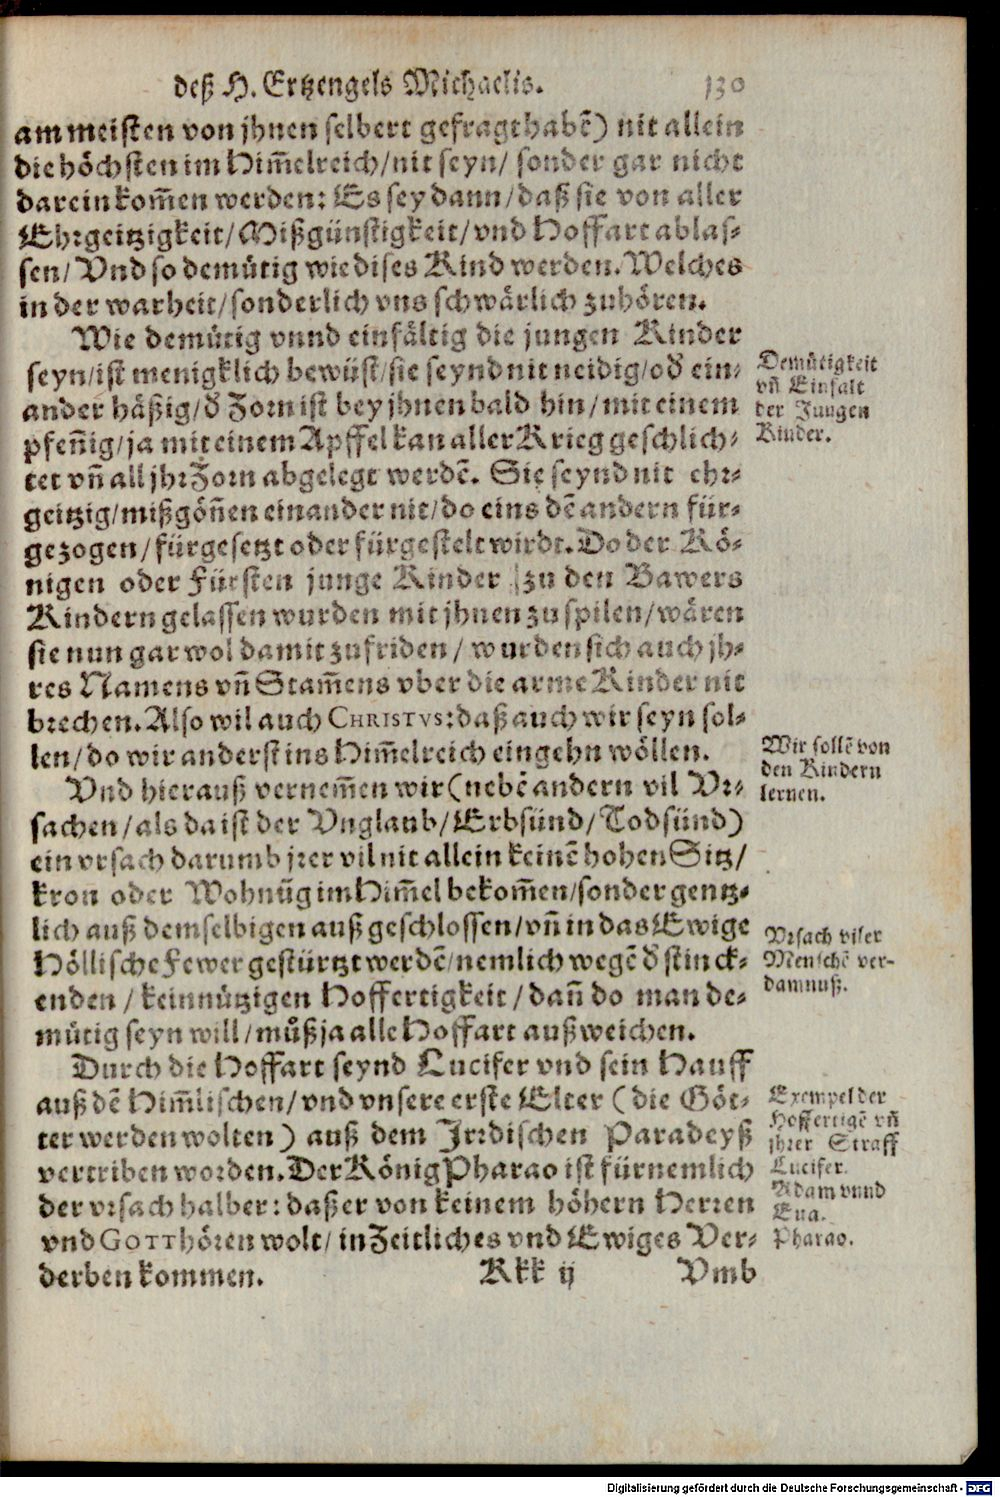 deß H. Ertzengels Michaelis. 130
am meisten von jhnen selbert gefragt habē) nit allein
die höchsten im Him̄elreich/nit seyn/ sonder gar nicht
darein kom̄en werden: Es sey dann/daß sie von aller
Ehrgeitzigkeit/Mißgünstigkeit/vnd Hoffart ablas-
sen/Vnd so demütig wie dises Kind werden. Welches
in der warheit/sonderlich vns schwärlich zuhören.
Wie demütig vnnd einfältig die jungen Kinder
seyn/ist menigklich bewüst/sie seynd nit neidig/od̄ ein-
ander häßig/d̄ Zorn ist bey jhnen bald hin/mit einem
pfen̄ig/ja mit einem Apffel kan aller Krieg geschlich-
tet vn̄ all jhr Zorn abgelegt werdē. Sie seynd nit ehr-
geitzig/mißgön̄en einander nit/do eins dē andern für-
gezogen/fürgesetzt oder fürgestelt wirdt. Do der Kö-
nigen oder Fürsten junge Kinder zu den Bawers
Kindern gelassen wurden mit jhnen zu spilen/wären
sie nun gar wol damit zufriden/wurden sich auch jh-
res Namens vn̄ Stam̄ens vber die arme Kinder nit
brechen. Also wil auch CHRISTVS: daß auch wir seyn sol-
len/do wir anderst ins Him̄elreich eingehn wöllen.
Vnd hierauß vernem̄en wir (nebē andern vil Vr-
sachen/als da ist der Vnglaub/Erbsünd/Todsünd)
ein vrsach darumb jrer vil nit allein keinē hohen Sitz/
kron oder Wohnūg im Him̄el bekom̄en/sonder gentz-
lich auß demselbigen auß geschlossen/vn̄ in das Ewige
Höllische Fewer gestürtzt werdē/nemlich wegē d̄ stinck-
enden/keinnützigen Hoffertigkeit/dan̄ do man de-
mütig seyn will/můß ja alle Hoffart außweichen.
Durch die Hoffart seynd Lucifer vnd sein Hauff
auß dē Him̄lischen/vnd vnsere erste Elter (die Göt-
ter werden wolten) auß dem Jrrdischen Paradeyß
vertriben worden. Der König Pharao ist fürnemlich
der vrsach halber: daß er von keinem höhern Herren
vnd GOTT hören wolt/in Zeitliches vnd Ewiges Ver-
derben kommen. Kkk ij Vmb
Demütigkeit
vn̄ Einfalt
der Jungen
Kinder.
Wir sollē von
den Kindern
lernen.
Vrsach viler
Menschē ver-
damnuß.
Exempel der
Hoffertigē vn̄
jhrer Straff
Lucifer.
Adam vnnd
Eua.
Pharao.
Digitalisierung gefördert durch die Deutsche Forschungsgemeinschaft - DFG